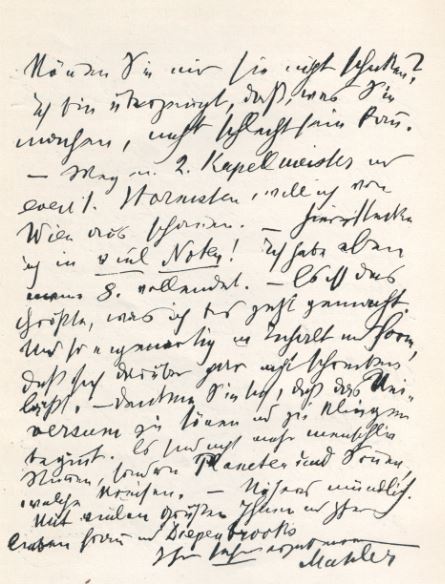 Können Sie mir sie nicht schicken?
Ich bin überzeugt, daß, was Sie
machen, nicht schlecht sein kann.
— Weg. 2. Kapellmeister und
event. Hornisten, will ich von
Wien aus schauen. —
ich in viel Noten! Ich habe eben
meine 8. vollendet. — Es ist das
Größte, was ich bis jetzt gemacht.
Und so eigenartig in Inhalt und Form,
daß sich darüber gar nicht schreiben
läßt. — Denken Sie sich, daß das Uni-
versum zu tönen und zu klingen
beginnt. Es sind nicht mehr menschliche
Stimmen, sondern Planeten und Sonnen,
welche kreisen. — Näheres mündlich.
Mit vielen Grüßen Ihnen und Ihrer
lieben Frau und Diepenbrocks
Ihr
Mahler